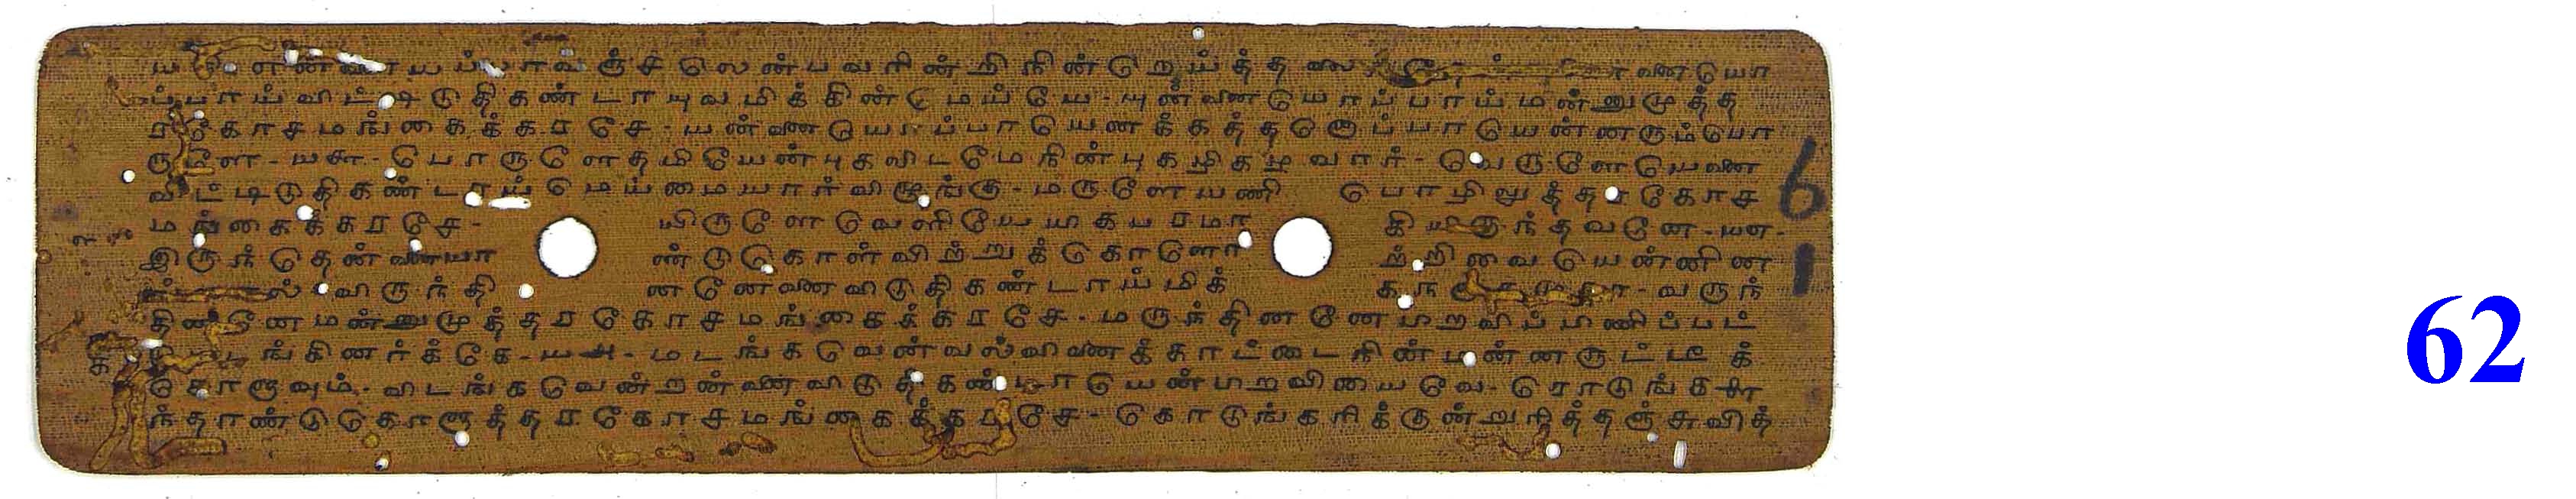 ப்பாய் விட்டிடுதிகண்டாயுவமிக்கின்மெய்யே - யுன்னையொப்பாய்மன்னுமுத்த
ரகோசமங்கைக்கரசே - யன்னையொப்பாயெனக்கத்தனொப்பாயென்னரும்பொ
ருளே - பொருளேதமியேன்புகலிடமேநின்புகழிகழ்வார் - வெருளேயெனை
விட்டிடுதிகண்டாய்மெய்மையார்விழுங்கு - மருளேயணி பொழிலுத்தரகோச
மங்கைக்கரசே - யிருளேவெளியேயிகபரமா கியிருந்தவனே -
இருந்தென்னையா ண்டுகொள்விற்றுக்கொளொ ற்றிவையென்னின
ல்விருந்தி னனேனைவிடுதிகண்டாய்மிக் கந - வருந்
தினனேமன்னுமுத்தரகோசமங்கைக்கரசே - மருந்தினனேபிறவிப்பிணிப்பட்
டங்கினர்க்கே - மடங்கவென்வல்வினைக்காட்டைநின்மன்னருட்டீ க்
கொளுவும் - விடங்கவென்றன்னைவிடுதிகண்டாயென்பிறவியைவே - ரொடுங்களை
ந்தாண்டுகொளுத்தரகோசமங்கைக்கரசே - கொடுங்கரிக்குன்றுரித்தஞ்சுவித்
61
62